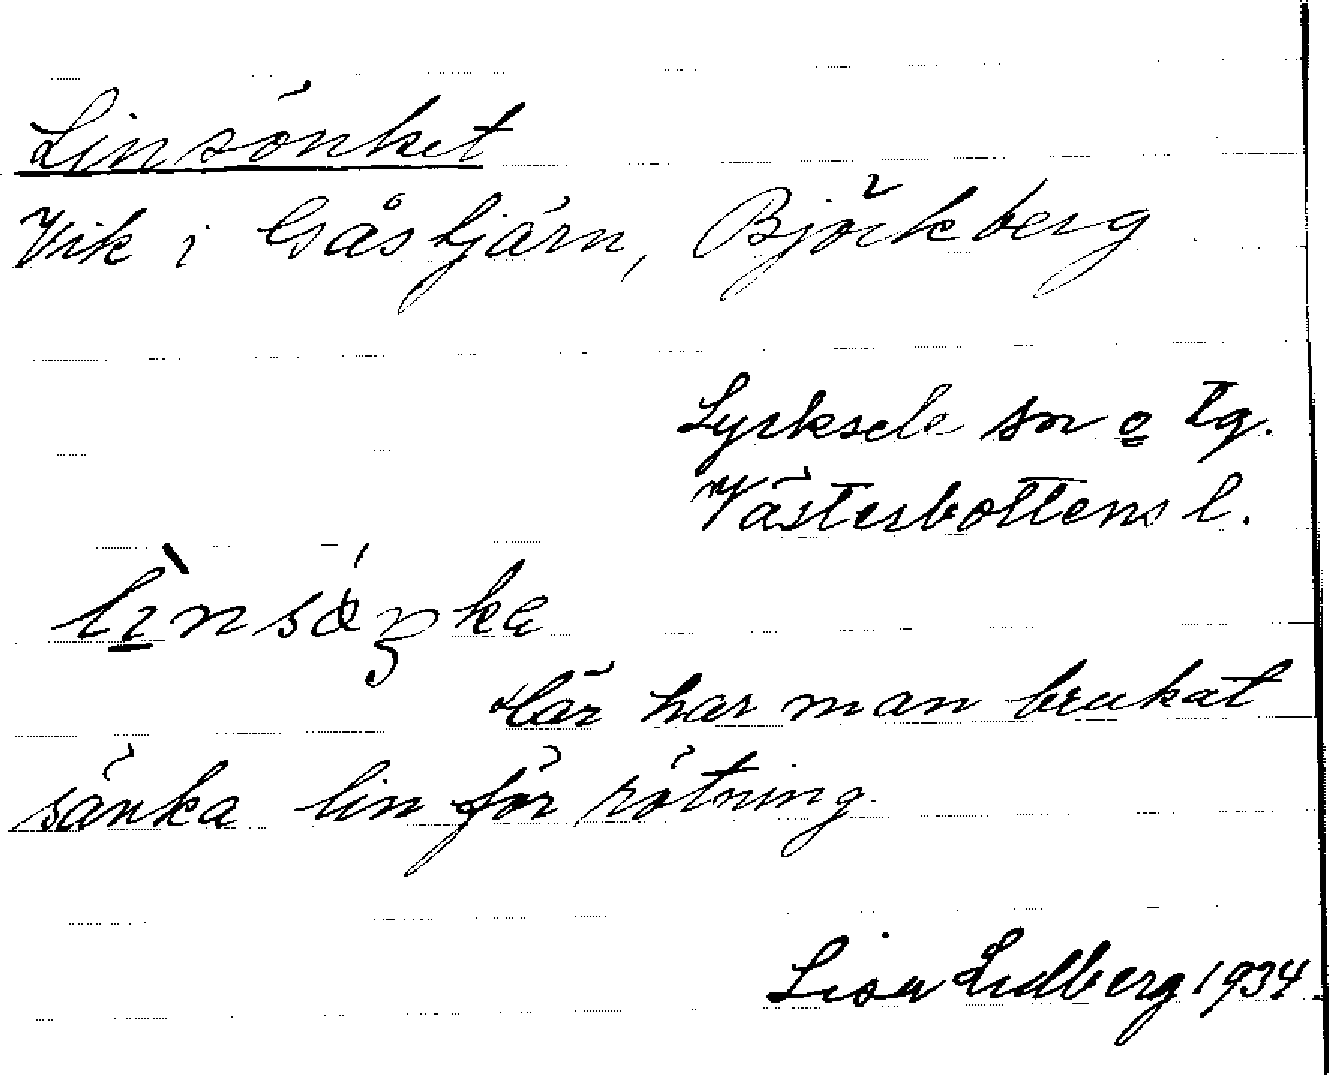 Linsönket
Vik i Gåstjärn, Björkberg
Lycksele sn o Tg.
Västerbottens l.
Här har man brukat
sänka lin för rötning.
Lisa Lidberg 1934